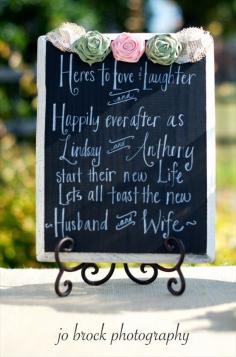 Heres to Love & Laughter
and
Happily ever after as
Lindsay and Anthony
start their new Life
Lets all toast the new
~Husband and Wife~
jo brock photography